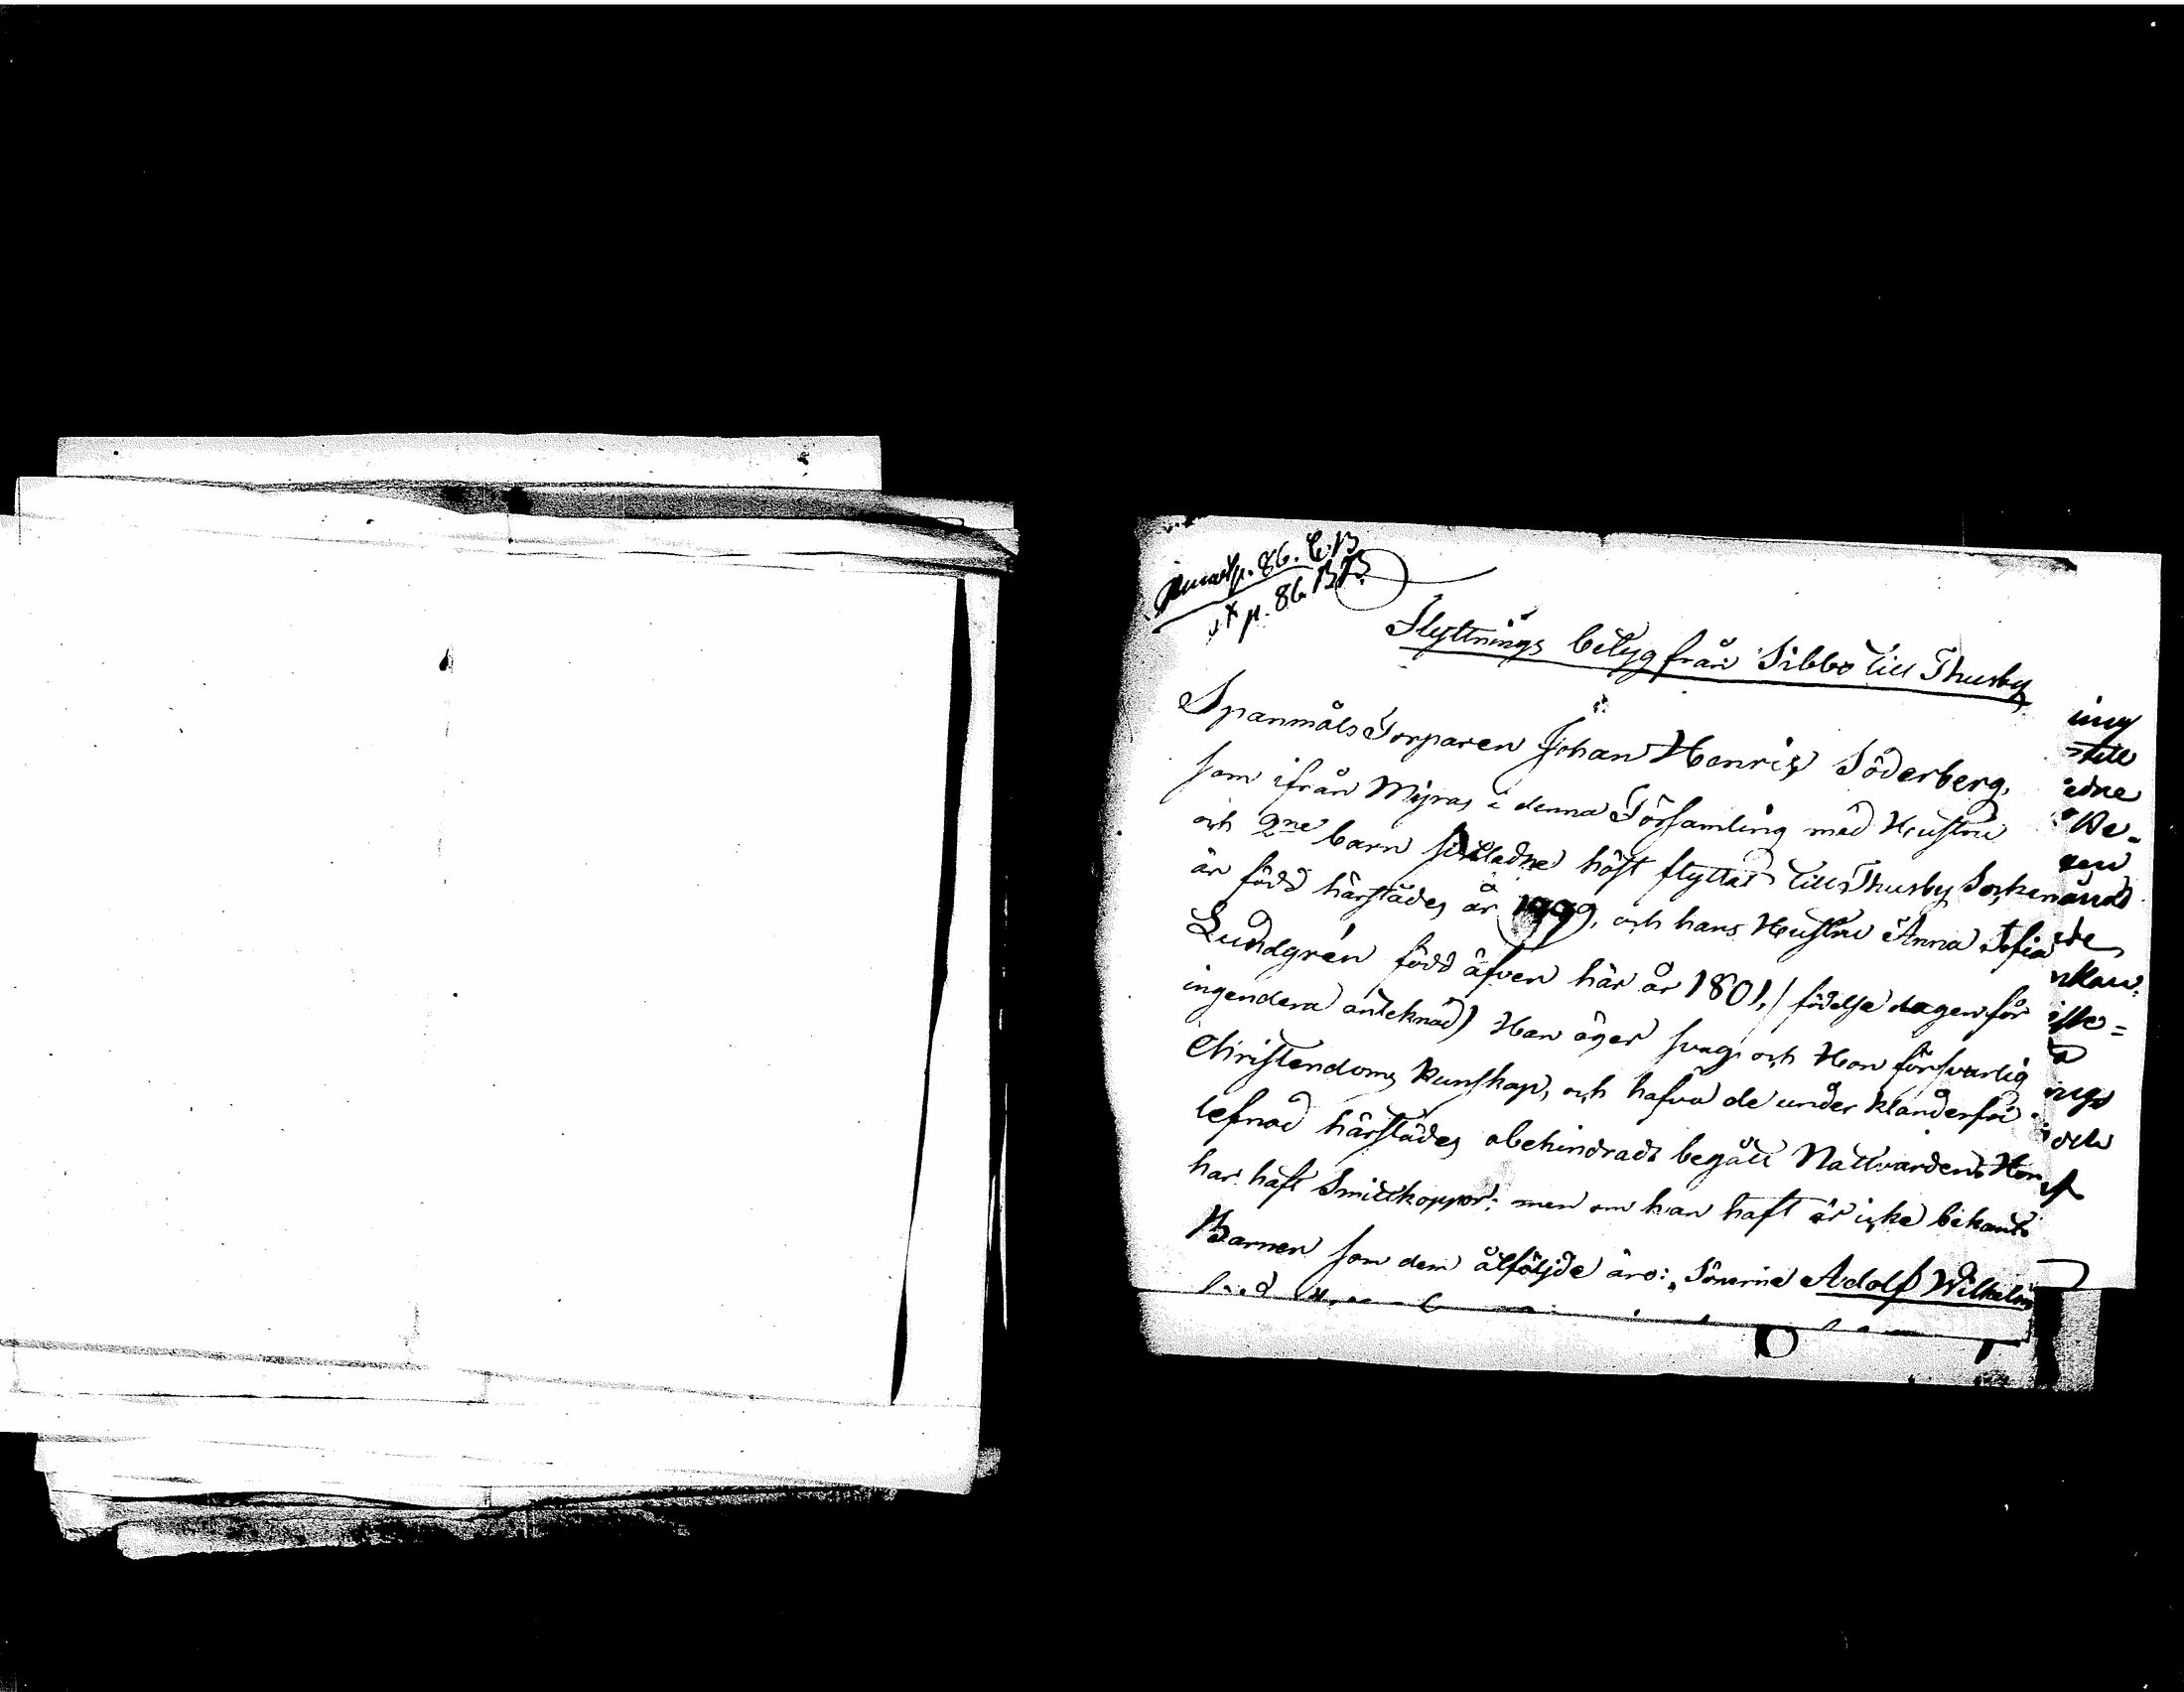 p. 86. C.B
p. 86. B.B.
Flyttnings betyg från Sibbo till Thusby
Spanmåls Torparen Johan Henric Söderberg,
som ifrån Myras i denna Församling med Hustru
och 2ne barn sistledne höst flyttat till Thusby Socken
är född härstädes år 1799, och hans Hustru Anna Sofia
Lundgrén född äfven här år 1801, (födelse dagen för
ingendera anteknad) Han äger svag och Hon försvarlig
Christendoms kunskap, och hafva de under klanderfri
lefnad härstädes obehindradt begått Nattvarden. Hon
har haft Smittkoppor; men om han haft är icke bekant.
Barnen som dem åtföljde äro: Sönerne Adolf Wilhelm